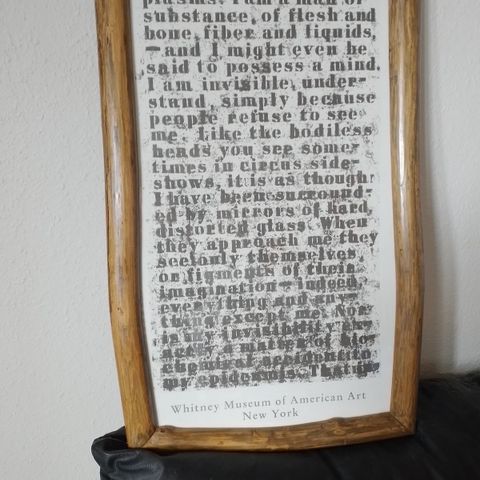 plasms. I am a man of
substance, of flesh and
bone, fiber and liquids,
—and I might even be
said to possess a mind.
I am invisible, under-
stand, simply because
people refuse to see
me. Like the bodiless
heads you see some-
times in circus side-
shows, it is as though
I have been surround-
ed by mirrors of hard,
distorted glass. When
they approach me they
see only themselves,
or figments of their
imagination—indeed,
everything and any-
thing except me. Nor
is my invisibility ex-
actly a matter of bio-
chemical accident to
my epidermis. That in
Whitney Museum of American Art
New York